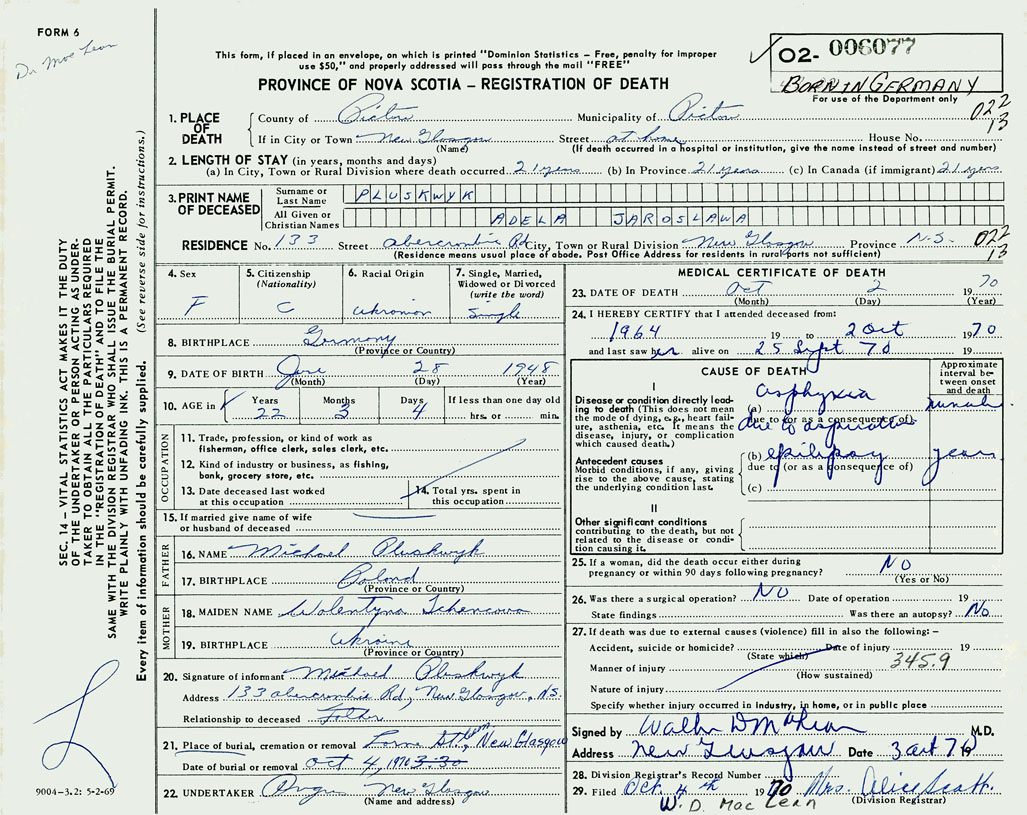 FORM 6
Dr Mac Lean
This form, if placed in an envelope, on which is printed "Dominion Statistics – Free, penalty for improper
use $50," and properly addressed will pass through the mail "FREE"
02- 006077
BORN IN GERMANY
For use of the Department only
PROVINCE OF NOVA SCOTIA – REGISTRATION OF DEATH
022
13
1. PLACE OF DEATH
County of Pictou Municipality of Pictou
If in City or Town New Glasgow Street at home House No.
(Name) (If death occurred in a hospital or institution, give the name instead of street and number)
2. LENGTH OF STAY (in years, months and days)
(a) In City, Town or Rural Division where death occurred 21 years (b) In Province 21 years (c) In Canada (if immigrant) 21 years
3. PRINT NAME OF DECEASED
Surname or Last Name PLUSKWYK
All Given or Christian Names ADELA JAROSLAWA
RESIDENCE No. 133 Street Abercrombie Rd City, Town or Rural Division New Glasgow Province N.S.
022
13
(Residence means usual place of abode. Post Office Address for residents in rural parts not sufficient)
4. Sex
F
5. Citizenship
(Nationality)
C
6. Racial Origin
Ukranian
7. Single, Married,
Widowed or Divorced
(write the word)
Single
8. BIRTHPLACE Germany
(Province or Country)
9. DATE OF BIRTH June 28 1948
(Month) (Day) (Year)
10. AGE in
Years Months Days If less than one day old
22 3 4 hrs. or min.
OCCUPATION
11. Trade, profession, or kind of work as
fisherman, office clerk, sales clerk, etc.
12. Kind of industry or business, as fishing,
bank, grocery store, etc.
13. Date deceased last worked
at this occupation
14. Total yrs. spent in
this occupation
15. If married give name of wife
or husband of deceased
FATHER
16. NAME Michael Pluskwyk
17. BIRTHPLACE Poland
(Province or Country)
MOTHER
18. MAIDEN NAME Walentyna
19. BIRTHPLACE Ukraine
(Province or Country)
20. Signature of informant Michael Pluskwyk
Address 133 Abercrombie Rd, New Glasgow, N.S.
Relationship to deceased Father
21. Place of burial, cremation or removal Lorne St. Cem, New Glasgow
Date of burial or removal Oct 4, 1970 3:30
22. UNDERTAKER Angus New Glasgow
(Name and address)
MEDICAL CERTIFICATE OF DEATH
23. DATE OF DEATH Oct 2 1970
(Month) (Day) (Year)
24. I HEREBY CERTIFY that I attended deceased from:
1964 19 to 2 Oct 1970
and last saw her alive on 25 Sept 70 19
CAUSE OF DEATH
Approximate
interval between onset
and death
I
Disease or condition directly leading to death (This does not mean
the mode of dying, e.g., heart failure, asthenia, etc. It means the
disease, injury, or complication
which caused death.)
(a) asphyxia
due to (or as a consequence of)
due to aspiration
Antecedent causes
Morbid conditions, if any, giving
rise to the above cause, stating
the underlying condition last.
(b) epilepsy years
due to (or as a consequence of)
(c)
II
Other significant conditions
contributing to the death, but not
related to the disease or condition causing it.
25. If a woman, did the death occur either during
pregnancy or within 90 days following pregnancy? NO
(Yes or No)
26. Was there a surgical operation? NO Date of operation 19
State findings Was there an autopsy? No
27. If death was due to external causes (violence) fill in also the following: –
Accident, suicide or homicide? Date of injury 19
(State which)
345.9
Manner of injury
(How sustained)
Nature of injury
Specify whether injury occurred in industry, in home, or in public place
Signed by Walter D McLean M.D.
Address New Glasgow Date 3 Oct 70 19
28. Division Registrar's Record Number
29. Filed Oct. 4th 1970 Mrs. Alice Scott
W. D. Mac Lean (Division Registrar)
SEC. 14 – VITAL STATISTICS ACT MAKES IT THE DUTY
OF THE UNDERTAKER OR PERSON ACTING AS UNDERTAKER TO OBTAIN ALL THE PARTICULARS REQUIRED
IN THE "REGISTRATION OF DEATH" AND TO FILE THE
SAME WITH THE DIVISION REGISTRAR WHO SHALL ISSUE THE BURIAL PERMIT.
WRITE PLAINLY WITH UNFADING INK. THIS IS A PERMANENT RECORD.
Every item of information should be carefully supplied. (See reverse side for instructions.)
9004-3.2: 5-2-69